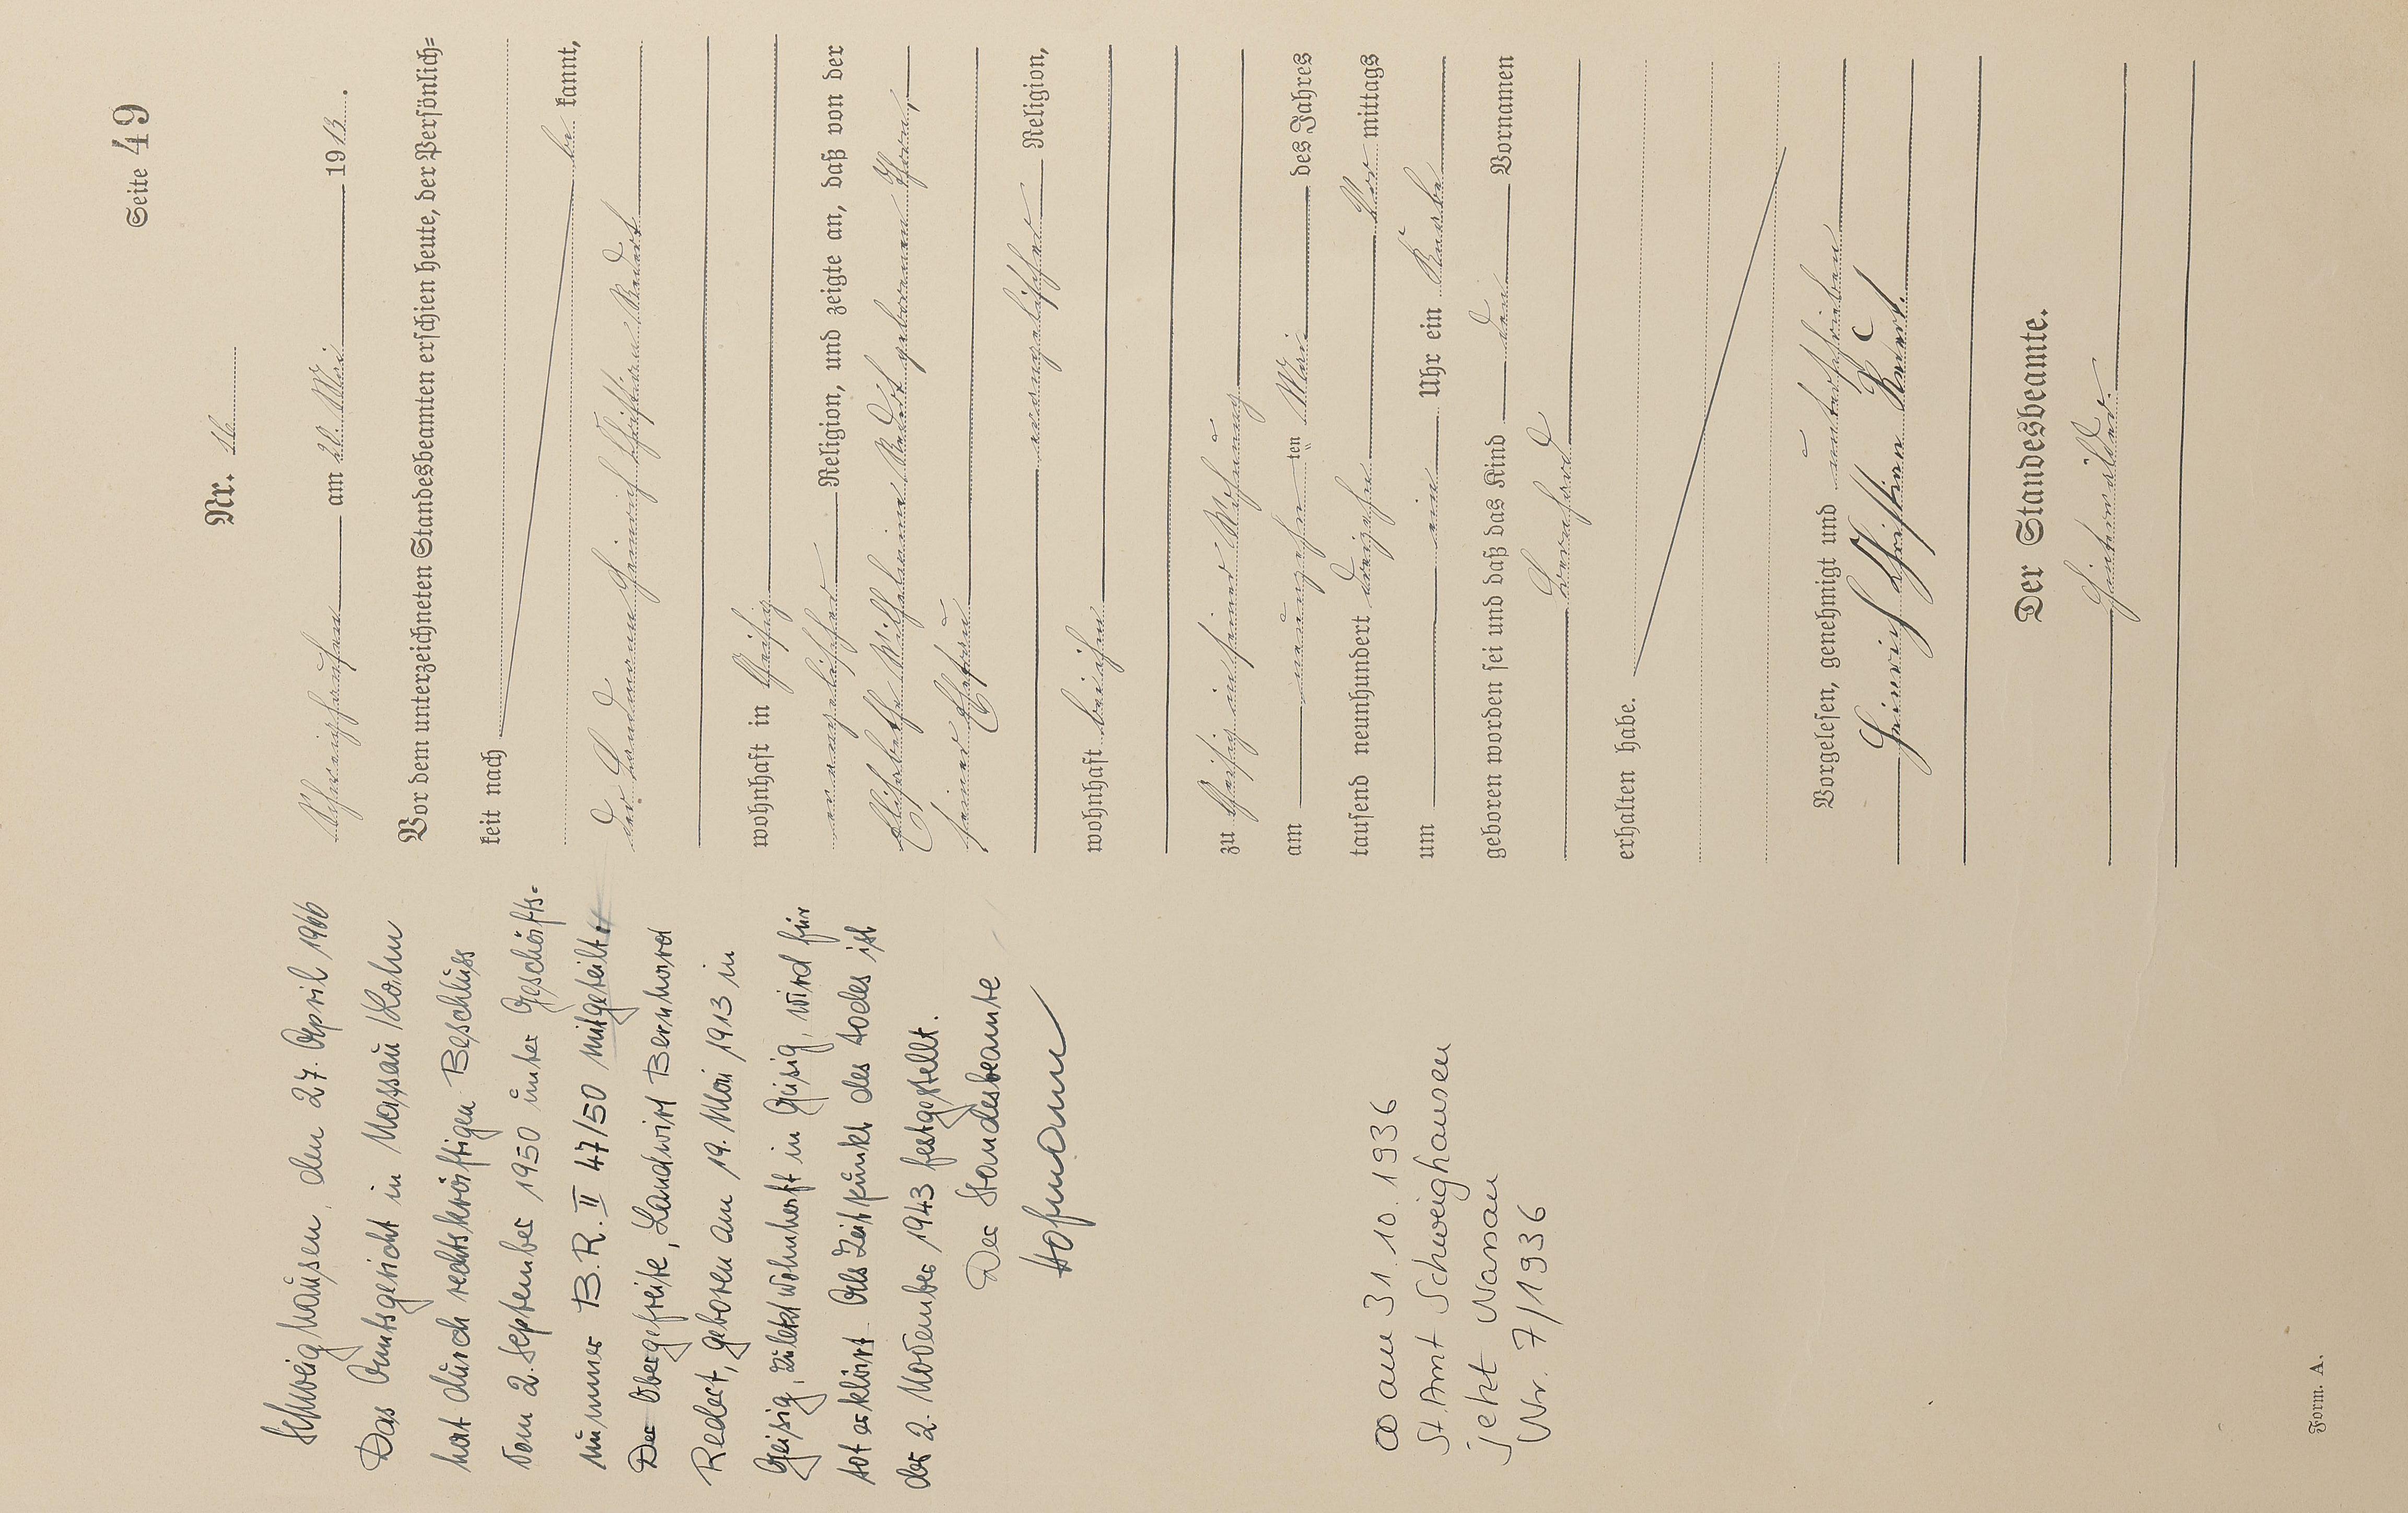 Seite 49
Nr. 16
Schweighausen am 20. Mai 1913.
Vor dem unterzeichneten Standesbeamten erschien heute, der Persönlich=
keit nach
be kannt,
der Landmann Heinrich Christian Redert
wohnhaft in Geisig
evangelischer Religion, und zeigte an, daß von der
Elisabethe Wilhelmine Redert geborenen
seiner Ehefrau
evangelischer Religion,
wohnhaft bei ihm
zu Geisig in seiner Wohnung
am neunzehnten Mai des Jahres
tausend neunhundert dreizehn Vor mittags
um ein Uhr ein Knabe
geboren worden sei und daß das Kind den Vornamen
Bernhard
erhalten habe.
Vorgelesen, genehmigt und unterschrieben
Heinrich Christian Redert.
Der Standesbeamte.
Schweighausen, den 27. April 1966
Das Amtsgericht in Nassau /Lahn
hat durch rechtskräftigen Beschluss
vom 2. September 1950 unter Geschäfts-
nummer B.R. II 47/50 mitgeteilt:
Der Obergefreite, Landwirt Bernhard
Redert, geboren am 19. Mai 1913 in
Geisig, zuletzt wohnhaft in Geisig, wird für
tot erklärt. Als Zeitpunkt des Todes ist
der 2. November 1943 festgestellt.
Der Standesbeamte
Hofmann
⚭ am 31.10.1936
St. Amt Schweighausen
jetzt Nassau
Nr. 7/1936
Form. A.